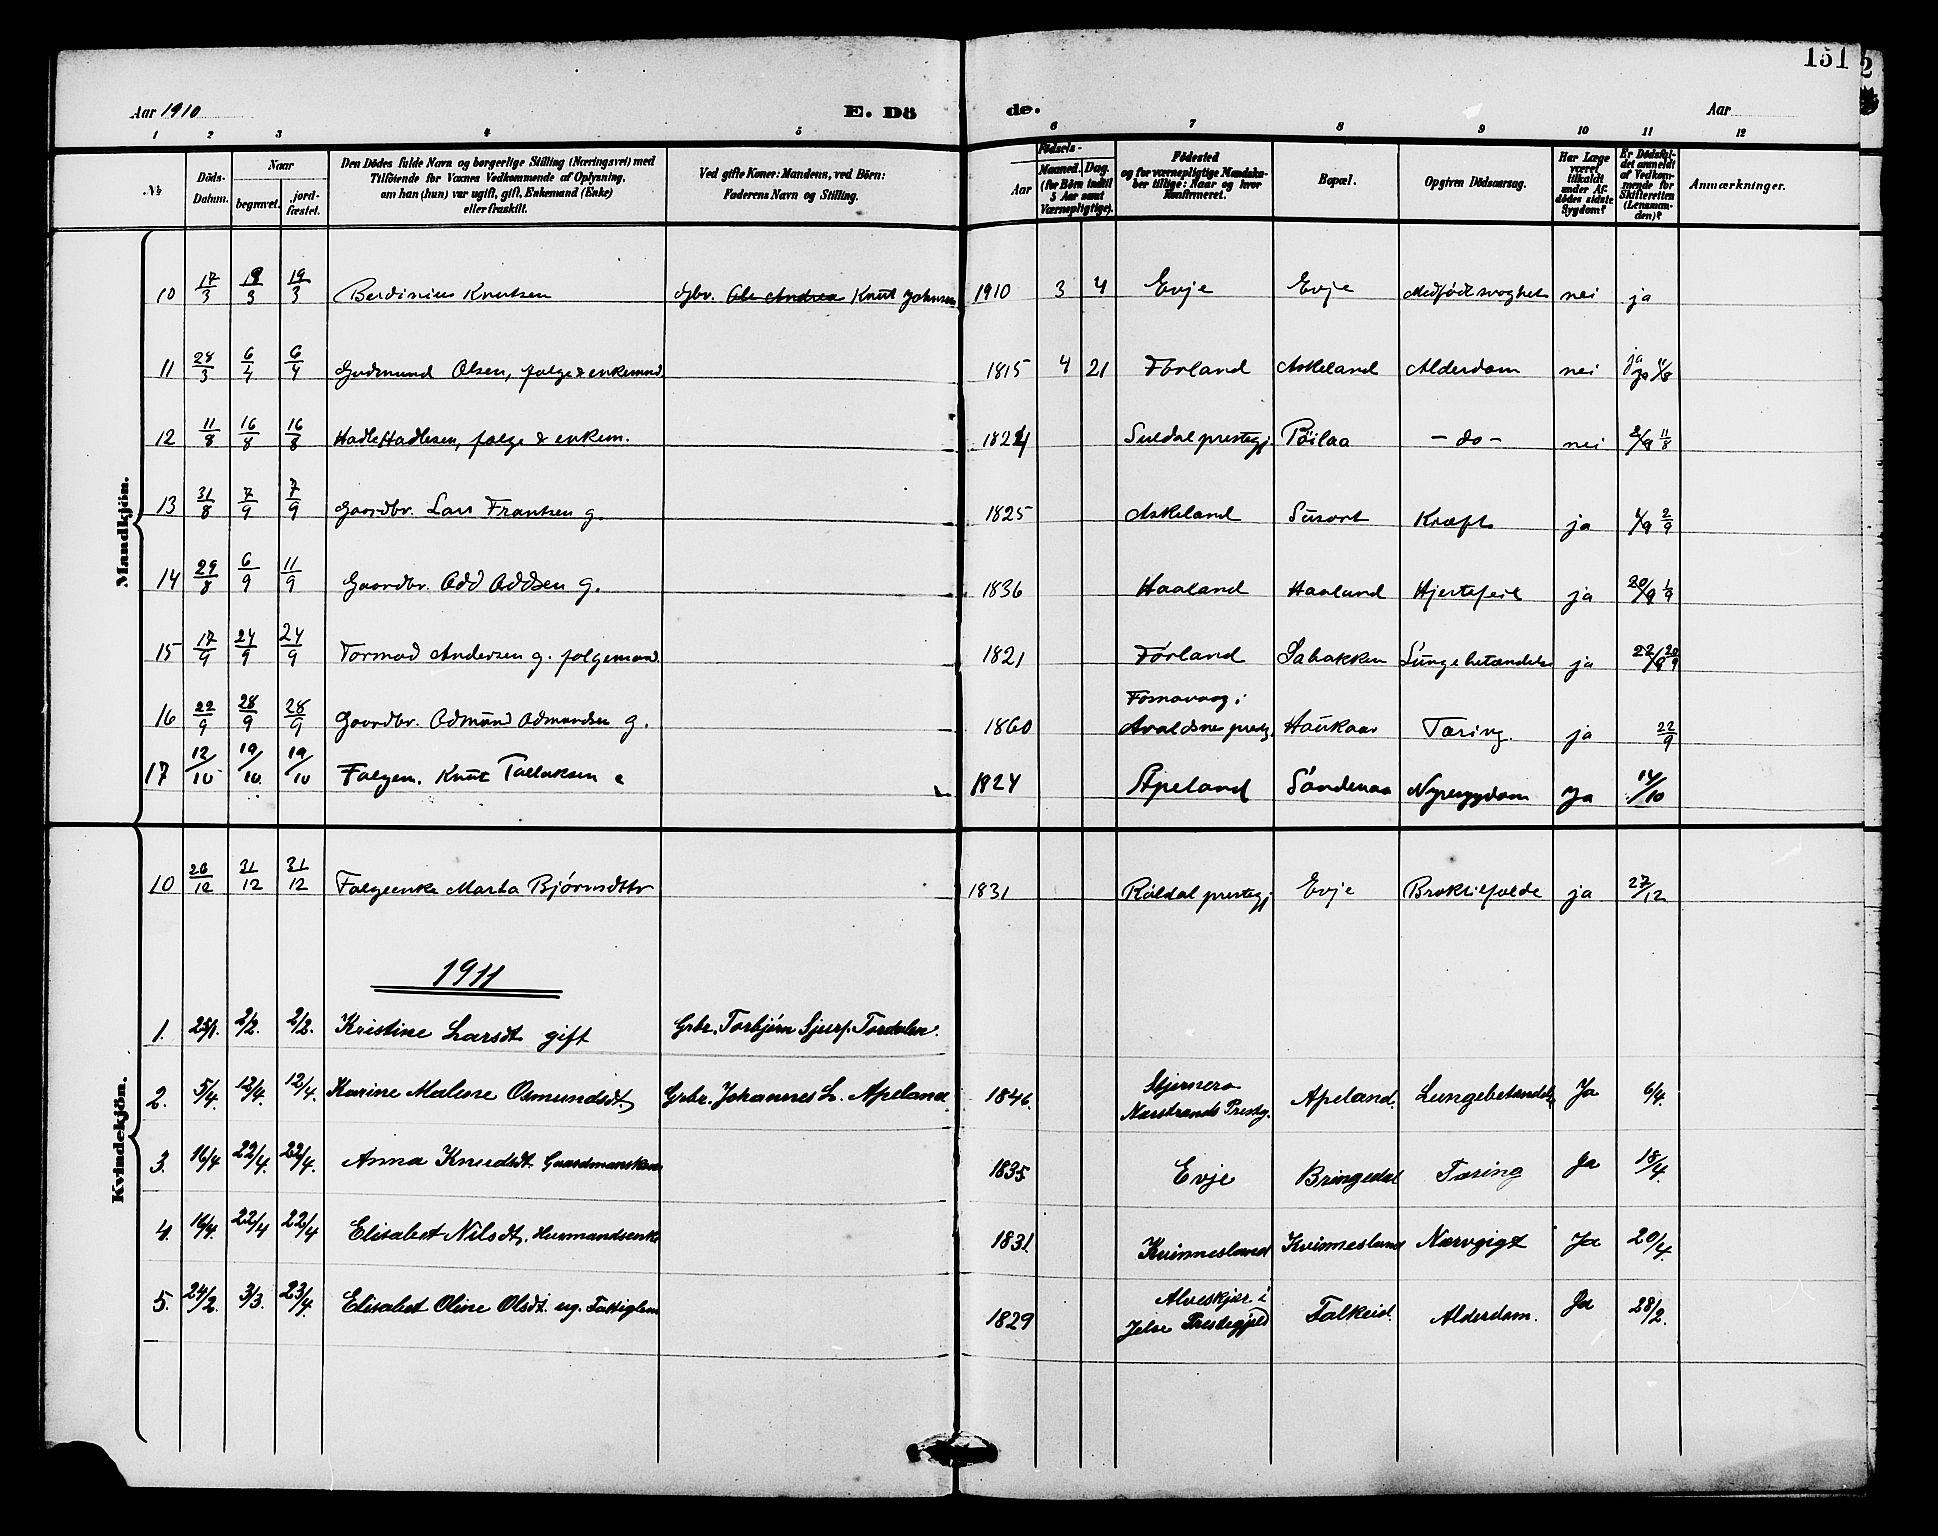 151
Aar 1910 E. Dö de. Aar
1 2 3 4 5 6 7 8 9 10 11 12
№ Döds-Datum. Naar begravet. jordfæstet. Den Dödes fulde Navn og borgerlige Stilling (Næringsvei) med Tilföiende for Voxnes Vedkommende af Oplysning, om han (hun) var ugift, gift, Enkemand (Enke) eller fraskilt. Ved gifte Koner: Mandens, ved Börn: Faderens Navn og Stilling. Födsels- Aar Maaned. Dag. (for Börn indtil 5 Aar samt Værnepligtige). Födested og for værnepligtige Mandskaber tillige: Naar og hvor Konfirmeret. Bopæl. Opgiven Dödsaarsag. Har Læge været tilkaldt under Afdödes sidste Sygdom? Er Dödsfaldet anmeldt af Vedkommende for Skifteretten (Lensmanden)? Anmærkninger.
Mandkjön.
10 17/3 19/3 19/3 Berdinius Knutsen gbr. Ole Andrea Knut Johnsen 1910 3 4 Evje Evje Medfødt svaghet nei ja
11 28/3 6/4 6/4 Gudmund Olsen, folge & enkemand 1815 4 21 Førland Askeland Alderdom nei ja
12 11/8 16/8 16/8 Hadle Hadlesen, folge & enkem. 1824 Suldal prestegj. - do - nei 11/8
13 31/8 7/9 7/9 Gaardbr. Lars Frantsen g. 1825 Askeland Susort Kræft ja 2/9
14 29/8 6/9 11/9 Gaardbr. Odd Oddsen g. 1836 Haaland Haaland Hjertefeil ja 1/9
15 17/9 24/9 24/9 Tormod Andersen g. folgemand. 1821 Førland Sabakken Lungebetændelse ja 20/9
16 22/9 28/9 28/9 Gaardbr. Odmund Odmundsen g. 1860 Fosnavaag i Avaldsnes prestg. Haukaas Tæring. ja 22/9
17 12/10 19/10 19/10 Folgem. Knut Tollaksen e 1824 Apeland Søndenaa Nyresygdom ja 14/10
Kvindekjön.
10 31/12 31/12 Folgeenke Marta Bjørnsdttr 1831 Røldal prestegj Evje Broktilfælde ja 27/12
1911
1. 25/1. 2/2. 2/2. Kristine Larsdt. gift Grbr. Torbjørn Sjurs. Tordalen.
2. 5/4. 12/4. 12/4. Karine Malene Osmundsdt. Grbr. Johannes L. Apeland 1846. Stjernerø Nærstrands Prestg. Apeland. Lungebetændelse Ja 6/4.
3. 16/4 22/4. 22/4. Anna Knudsdt. Gaardmandskone 1835 Evje Bringedal Tæring Ja 18/4.
4. 16/4. 22/4 22/4 Elisabet Nilsdt. Husmandsenke 1831. Kvinnesland Kvinnesland Nærvgigt Ja 20/4.
5. 24/2. 3/3. 23/4. Elisabet Oline Olsdt. ug. Fattiglem 1829 Alveskjær i Jelse Prestegjeld Falkeid. Alderdom. Ja 28/2.